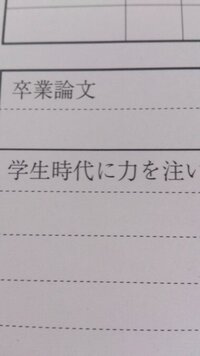 卒業論文
学生時代に力を注